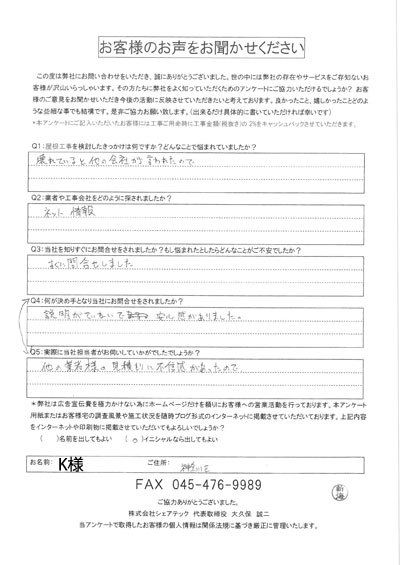 お客様のお声をお聞かせください
この度は弊社にお問い合わせをいただき、誠にありがとうございました。世の中には弊社の存在やサービスをご存知ないお
客様が沢山いらっしゃいます。その方たちに弊社をよく知っていただくためのアンケートにご協力いただけるでしょうか？お客
様のご意見をお聞かせいただき今後の活動に反映させていただきたいと考えております。良かったこと、嬉しかったことどのよ
うな些細な事でも結構です。是非ご協力お願い致します。（出来るだけ具体的に書いていただければ幸いです）
*本アンケートにご記入いただいたお客様には工事ご用命時に工事金額(税抜き)の2%をキャッシュバックさせていただきます。
Q1：屋根工事を検討したきっかけは何ですか？どんなことで悩まれていましたか？
壊れていると他の会社が言われたので
Q2：業者や工事会社をどのように探されましたか？
ネット情報
Q3：当社を知りすぐにお問合せをされましたか？もし悩まれたとしたらどんなことがご不安でしたか？
すぐに問合せしました
Q4：何が決め手となり当社にお問合せをされましたか？
説明がていねいで安心感がありました。
Q5：実際に当社担当者がお伺いしていかがでしたでしょうか？
他の業者様の見積りに不信感があったので
＊弊社は広告宣伝費を極力かけない為にホームページだけを頼りにお客様への営業活動を行っております。本アンケート
用紙またはお客様宅の調査風景や施工状況を随時ブログ形式のインターネットに掲載させていただいております。上記内容
をインターネットや印刷物に掲載させていただいてもよろしいでしょうか？
（　）名前を出してもよい （○）イニシャルなら出してもよい
お名前： K様 ご住所： 神奈川区
FAX 045-476-9989
ご協力ありがとうございました。
株式会社シェアテック 代表取締役 大久保 誠二
当アンケートで取得したお客様の個人情報は関係法規に基づき厳正に管理いたします。